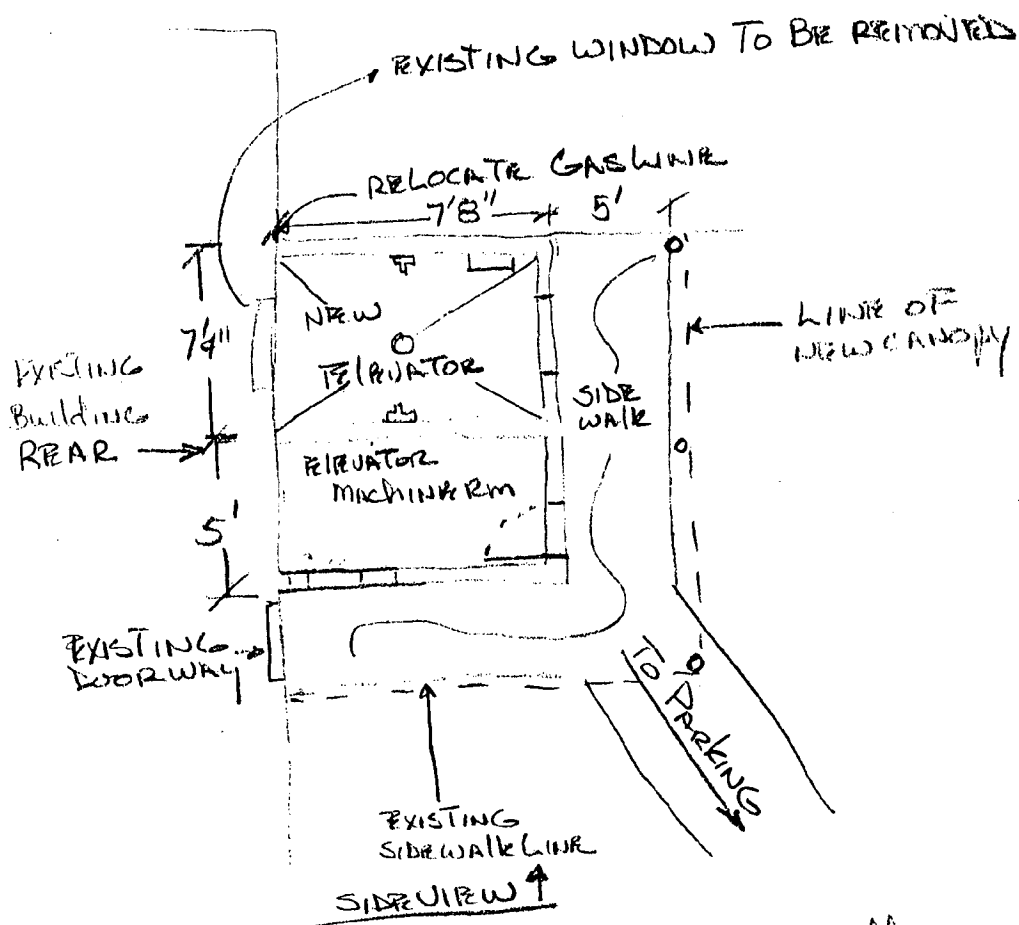 EXISTING WINDOW TO BE REMOVED
RELOCATE GASLINE
7'8"
5'
NEW
ELEVATOR
7'4"
LINE OF
NEW CANOPY
SIDE
WALK
EXISTING
Building
REAR
ELEVATOR
MACHINE RM
5'
EXISTING
DOORWAY
TO PARKING
EXISTING
SIDEWALK LINE
SIDE VIEW